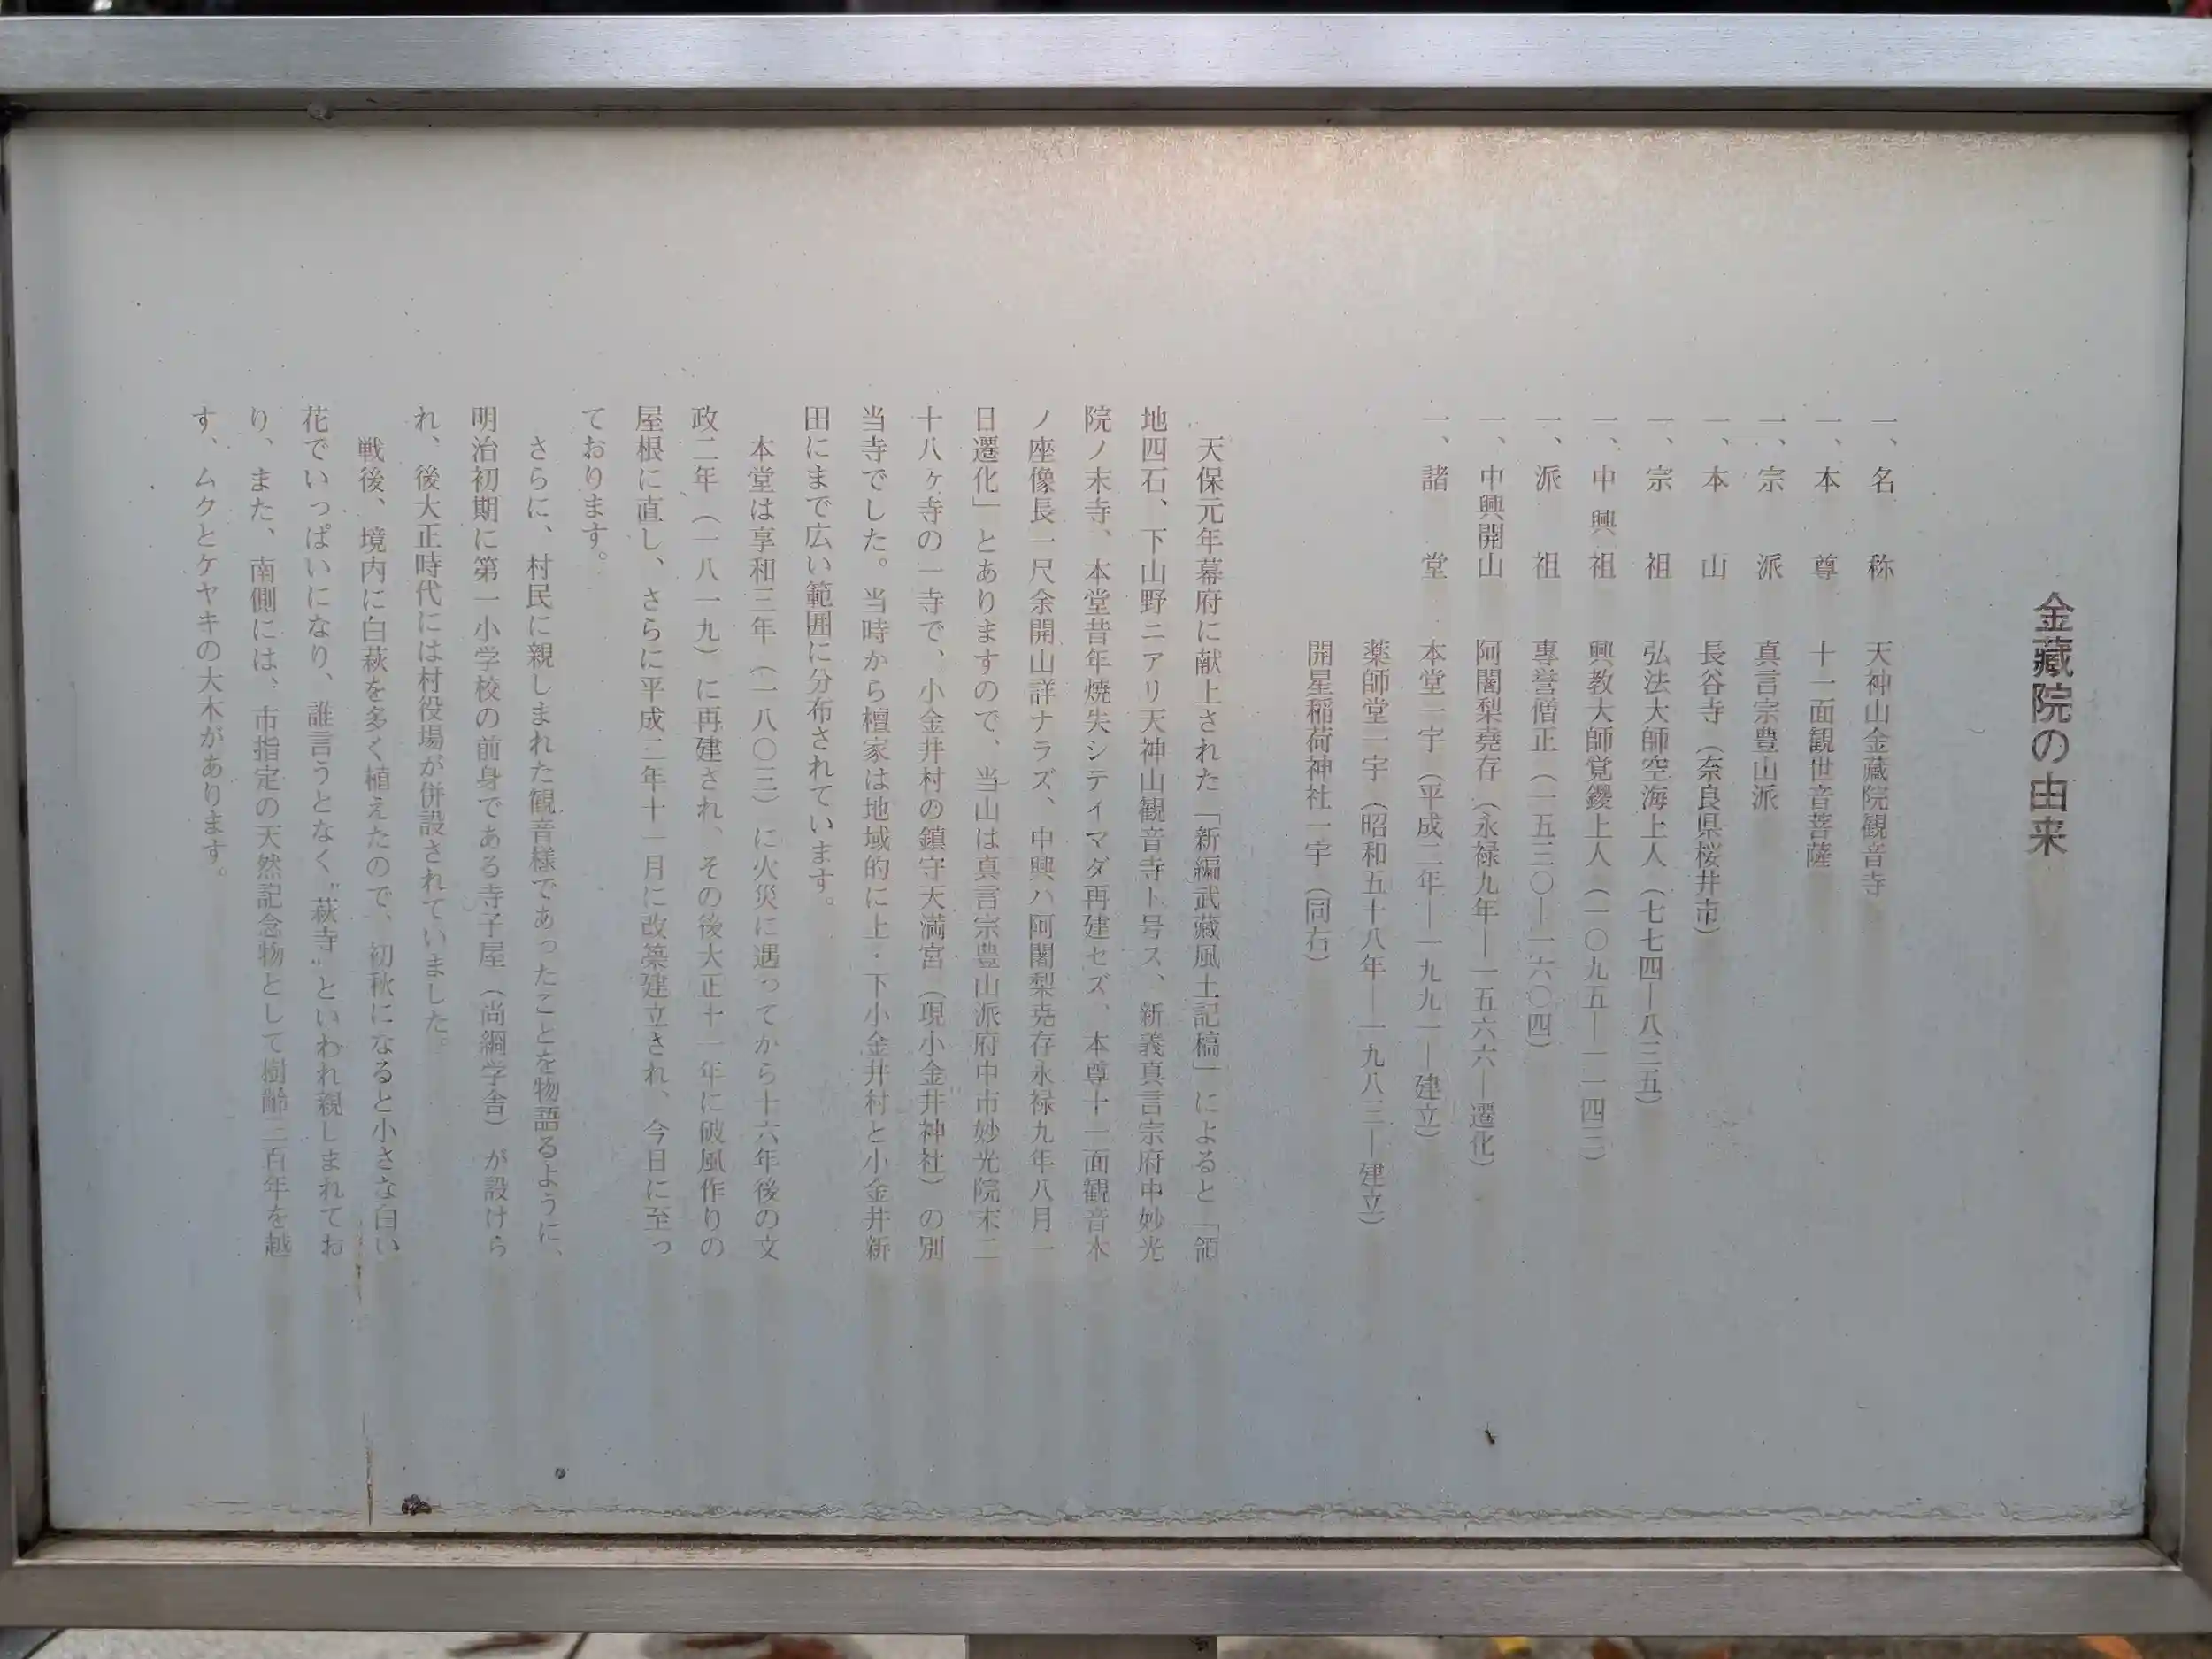 金藏院の由来
一、名称　天神山金藏院観音寺
一、本尊　十一面観世音菩薩
一、宗派　真言宗豊山派
一、本山　長谷寺（奈良県桜井市）
一、宗祖　弘法大師空海上人（七七四―八三五）
一、中興祖　興教大師覚鑁上人（一〇九五―一一四三）
一、派祖　專誉僧正（一五三〇―一六〇四）
一、中興開山　阿闍梨堯存（永禄九年―一五六六―遷化）
一、諸堂　本堂一宇（平成二年―一九九一―建立）
薬師堂一宇（昭和五十八年―一九八三―建立）
開星稲荷神社一宇（同右）
天保元年幕府に献上された「新編武蔵風土記稿」によると「領
地四石、下山野ニアリ天神山観音寺ト号ス、新義真言宗府中妙光
院ノ末寺、本堂昔年焼失シテイマダ再建セズ、本尊十一面観音木
ノ座像長一尺余開山詳ナラズ、中興ハ阿闍梨尭存永禄九年八月一
日遷化」とありますので、当山は真言宗豊山派府中市妙光院末二
十八ヶ寺の一寺で、小金井村の鎮守天満宮（現小金井神社）の別
当寺でした。当時から檀家は地域的に上・下小金井村と小金井新
田にまで広い範囲に分布されています。
本堂は享和三年（一八〇三）に火災に遇ってから十六年後の文
政二年（一八一九）に再建され、その後大正十一年に破風作りの
屋根に直し、さらに平成二年十一月に改築建立され、今日に至っ
ております。
さらに、村民に親しまれた観音様であったことを物語るように、
明治初期に第一小学校の前身である寺子屋（尚綱学舎）が設けら
れ、後大正時代には村役場が併設されていました。
戦後、境内に白萩を多く植えたので、初秋になると小さな白い
花でいっぱいになり、誰言うとなく〝萩寺〟といわれ親しまれてお
り、また、南側には、市指定の天然記念物として樹齢三百年を越
す、ムクとケヤキの大木があります。